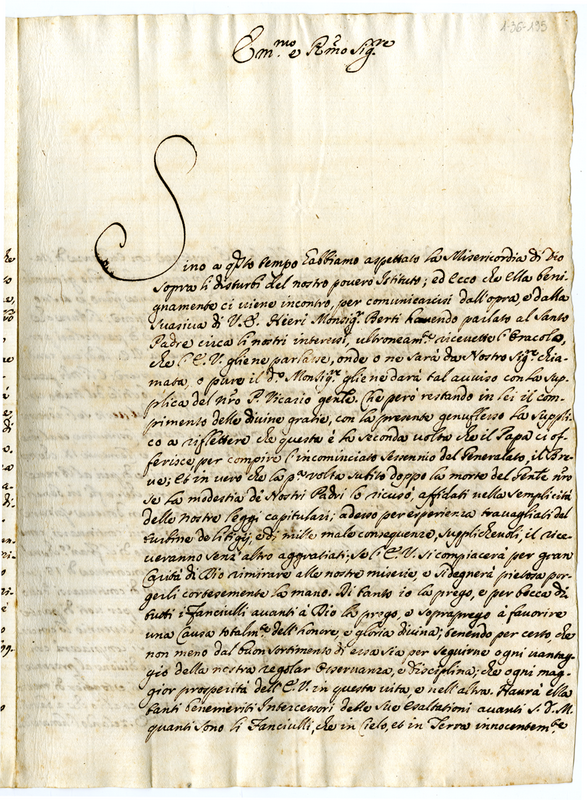 1-36-195
Em.mo e Rmo Sig.re
Sino a qsto tempo habbiamo aspettato la Misericordia di Dio
sopra li disturbi del nostro povero Istituto; ed ecco che Ella beni-
gnamente ci viene incontro, per comunicarcisi dall'opra, e dalla
suasiva di V.E. Hieri Monsig.r Berti havendo parlato al Santo
Padre circa li nostri interessi, ultroneam.te ricevette l'Oracolo,
che l'E.V. gliene parlasse, onde o ne sarà da Nostro Sig.re chia-
mata, o pure il d.o Monsig.re gliene darà tal avviso con la sup-
plica del nro P. Vicario gente. Che però restando in lei il com-
pimento delle divine gratie, con la presente genuflesso la suppli-
co a riflettere che questa è la seconda volta che il Papa ci of-
ferisce, per compire l'incominciato sessennio del Generalato, il Bre-
ve; et in vero che la p.a volta subito doppo la morte del Gente nro
se la modestia de Nostri Padri lo ricusò, affidati nella semplicità
delle nostre leggi capitulari; adesso per esperienza travagliati dal
turbine de litigij, e di mille male conseguenze, supplichevoli, il rice-
veranno senz'altro aggratiati; se l'E.V. si compiacerà per gran
Carità di Dio rimirare alle nostre miserie, e si degnerà pietosa por-
gerli cortesemente la mano. Di tanto io la prego, e per bocca di
tutti i Fanciulli avanti à Dio la prego, e sopraprego à favorire
una Causa totalm.te dell'honore, e gloria divina; tenendo per certo che
non meno dal buon sortimento di essa sia per seguirne ogni vantag-
gio della nostra regolar Osservanza, e Disciplina; che ogni mag-
gior prosperità dell'E.V. in questa vita, e nell'altra. Haurà ella
tanti benemeriti Intercessori delle sue esaltationi avanti S.D.M.
quanti sono li Fanciulli, che in Cielo, et in Terra innocentem.te